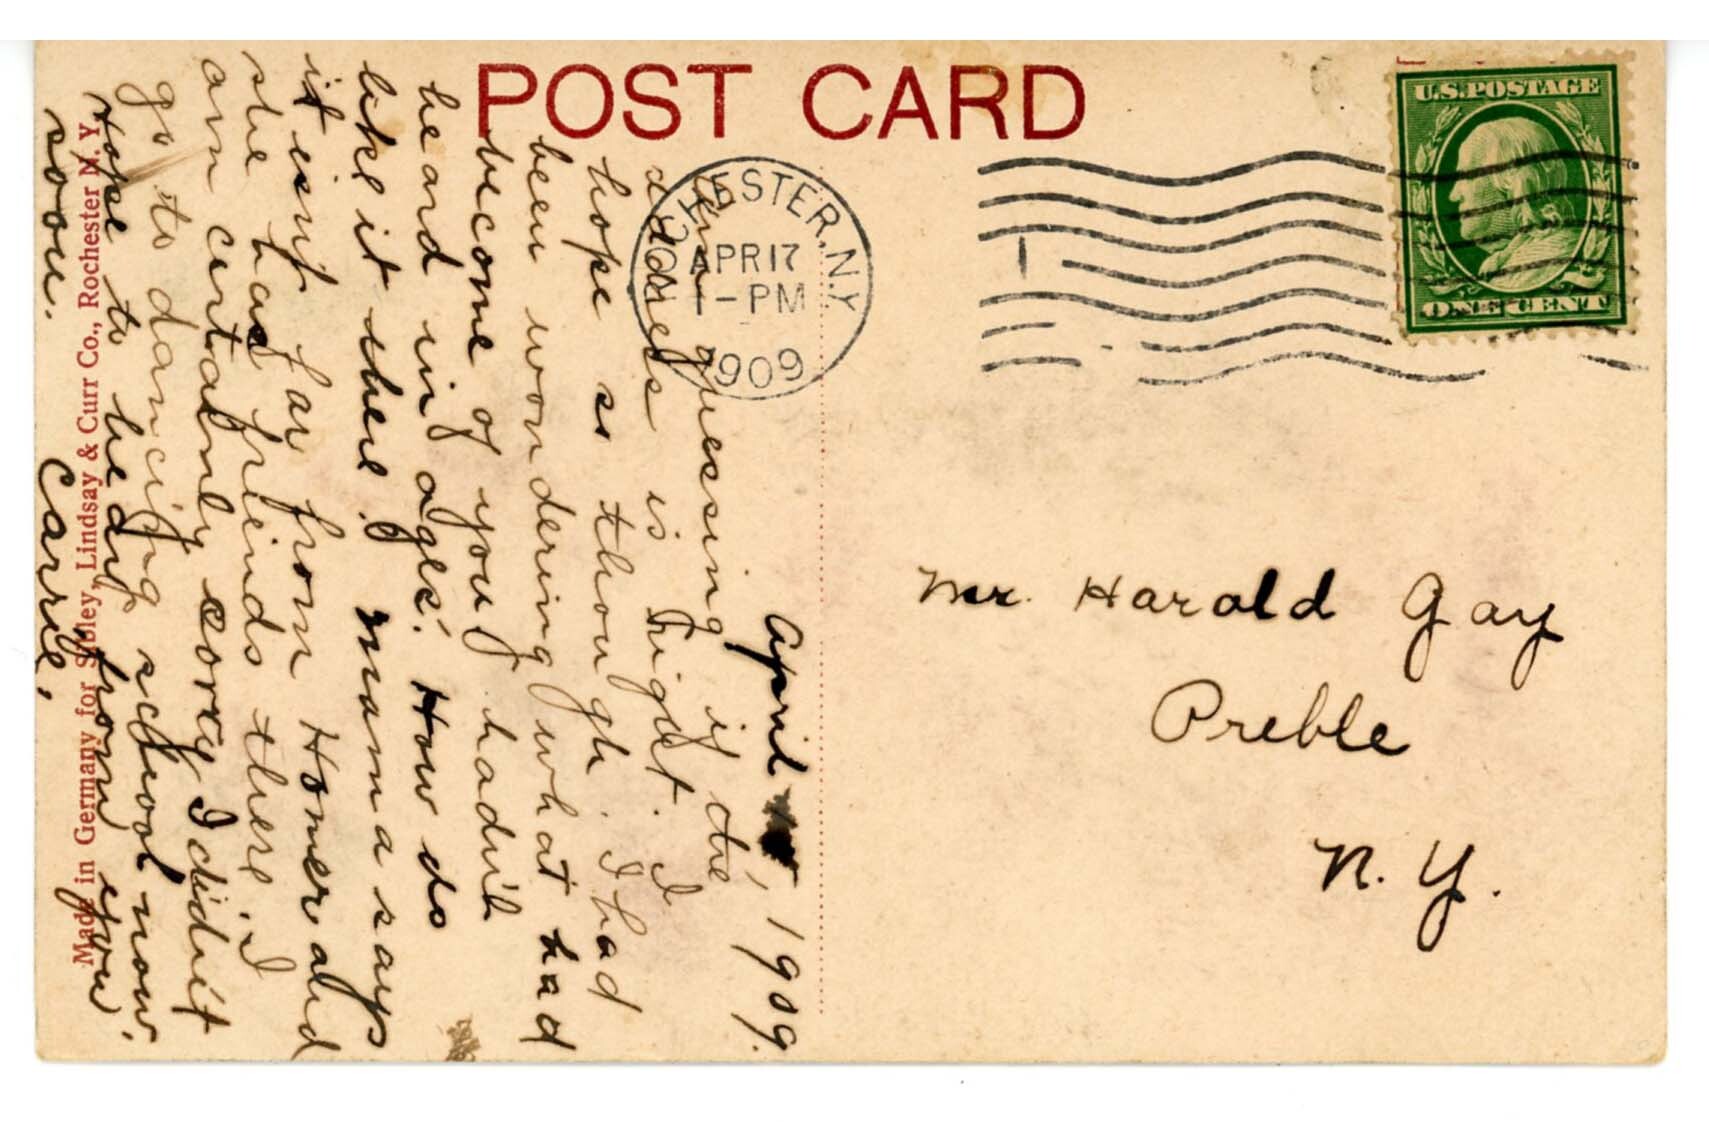 POST CARD
U.S. POSTAGE
ONE CENT
ROCHESTER, N.Y.
APR 17
1-PM
1909
April, 1909.
Am guessing if the
address is right. I
hope so though. I had
been wondering what had
become of you, hadn't
heard in ages. How do
like it there? Mama says
it isn't far from Homer and
she has friends there. I
am certainly sorry I didn't
go to dancing school now.
Hope to hear from you
soon. Carrie.
Mr. Harold Gay
Preble
N. Y.
Made in Germany for Sibley, Lindsay & Curr Co., Rochester N. Y.